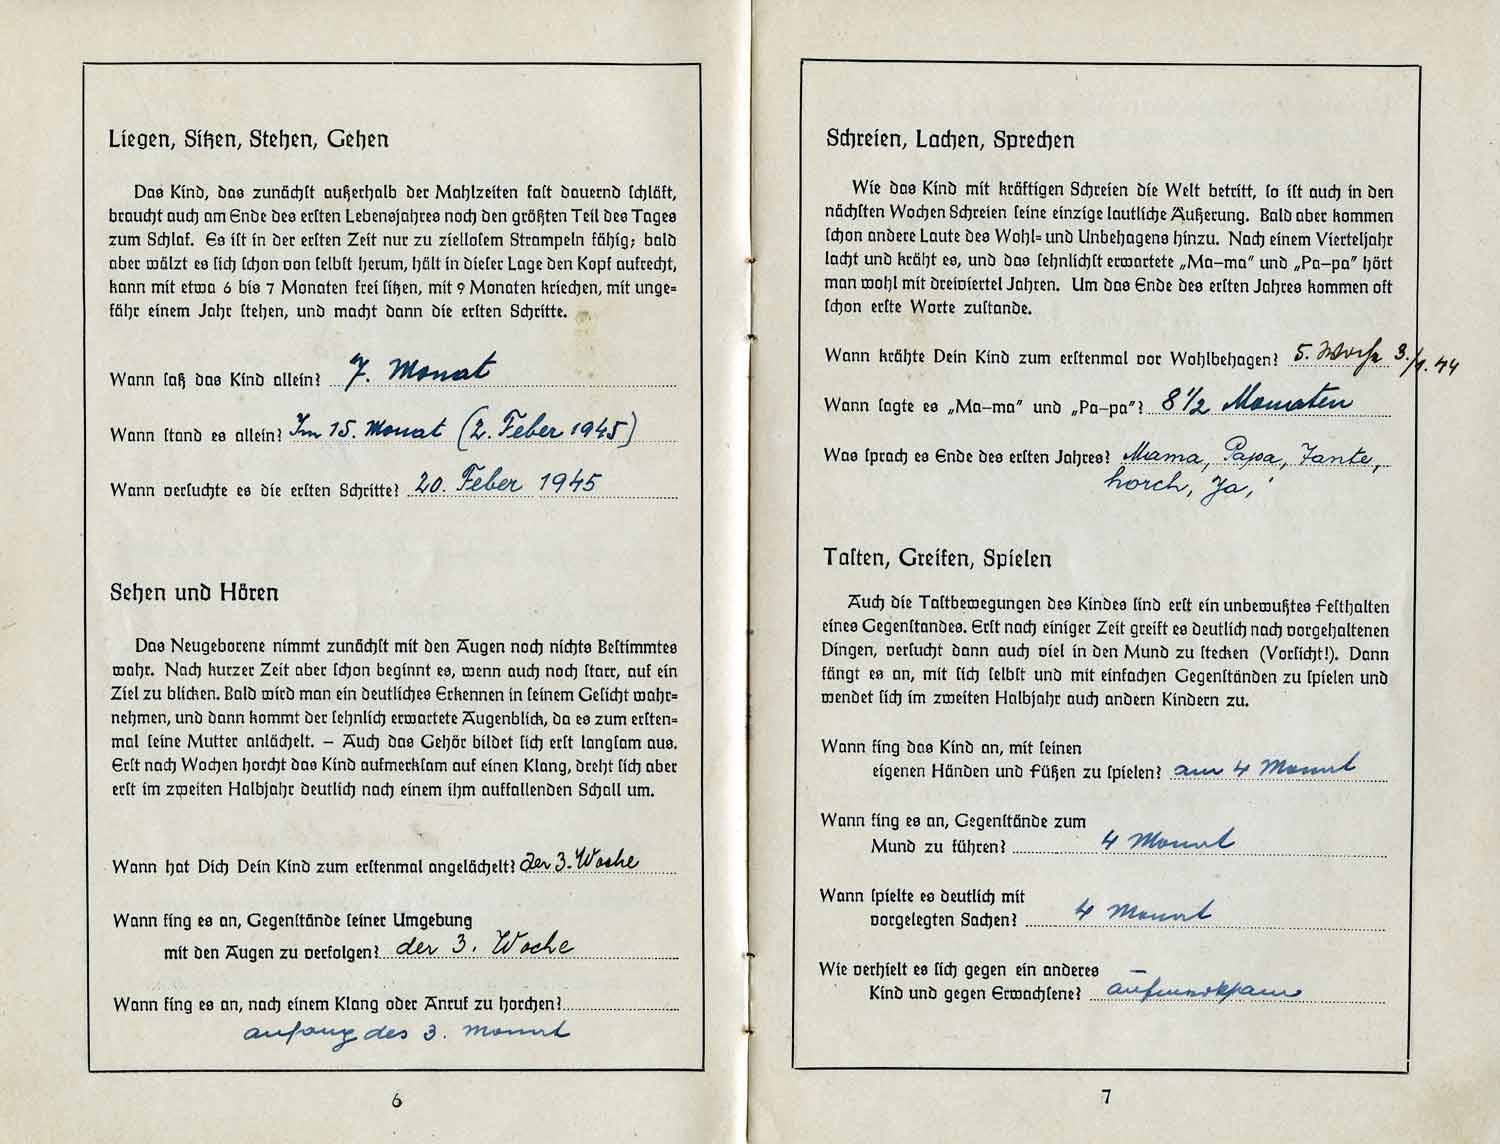 Liegen, Sitzen, Stehen, Gehen
Das Kind, das zunächst außerhalb der Mahlzeiten fast dauernd schläft,
braucht auch am Ende des ersten Lebensjahres noch den größten Teil des Tages
zum Schlaf. Es ist in der ersten Zeit nur zu ziellosem Strampeln fähig; bald
aber wälzt es sich schon von selbst herum, hält in dieser Lage den Kopf aufrecht,
kann mit etwa 6 bis 7 Monaten frei sitzen, mit 9 Monaten kriechen, mit unge=
fähr einem Jahr stehen, und macht dann die ersten Schritte.
Wann saß das Kind allein? 7. Monat
Wann stand es allein? Im 15. Monat (2. Feber 1945)
Wann versuchte es die ersten Schritte? 20. Feber 1945
Sehen und Hören
Das Neugeborene nimmt zunächst mit den Augen noch nichts Bestimmtes
wahr. Nach kurzer Zeit aber schon beginnt es, wenn auch noch starr, auf ein
Ziel zu blicken. Bald wird man ein deutliches Erkennen in seinem Gesicht wahr=
nehmen, und dann kommt der sehnlich erwartete Augenblick, da es zum ersten=
mal seine Mutter anlächelt. – Auch das Gehör bildet sich erst langsam aus.
Erst nach Wochen horcht das Kind aufmerksam auf einen Klang, dreht sich aber
erst im zweiten Halbjahr deutlich nach einem ihm auffallenden Schall um.
Wann hat Dich Dein Kind zum erstenmal angelächelt? der 3. Woche
Wann fing es an, Gegenstände seiner Umgebung
mit den Augen zu verfolgen? der 3. Woche
Wann fing es an, nach einem Klang oder Anruf zu horchen?
anfang des 3. Monat
6
Schreien, Lachen, Sprechen
Wie das Kind mit kräftigen Schreien die Welt betritt, so ist auch in den
nächsten Wochen Schreien seine einzige lautliche Äußerung. Bald aber kommen
schon andere Laute des Wohl= und Unbehagens hinzu. Nach einem Vierteljahr
lacht und kräht es, und das sehnlichst erwartete „Ma–ma" und „Pa–pa" hört
man wohl mit dreiviertel Jahren. Um das Ende des ersten Jahres kommen oft
schon erste Worte zustande.
Wann krähte Dein Kind zum erstenmal vor Wohlbehagen? 5. Woche 3./1. 44
Wann sagte es „Ma–ma" und „Pa–pa"? 8 1/2 Monaten
Was sprach es Ende des ersten Jahres? Mama, Papa, Tante,
horch, Ja,!
Tasten, Greifen, Spielen
Auch die Tastbewegungen des Kindes sind erst ein unbewußtes Festhalten
eines Gegenstandes. Erst nach einiger Zeit greift es deutlich nach vorgehaltenen
Dingen, versucht dann auch viel in den Mund zu stecken (Vorsicht!). Dann
fängt es an, mit sich selbst und mit einfachen Gegenständen zu spielen und
wendet sich im zweiten Halbjahr auch andern Kindern zu.
Wann fing das Kind an, mit seinen
eigenen Händen und Füßen zu spielen? am 4 Monat
Wann fing es an, Gegenstände zum
Mund zu führen? 4 Monat
Wann spielte es deutlich mit
vorgelegten Sachen? 4 Monat
Wie verhielt es sich gegen ein anderes
Kind und gegen Erwachsene? aufmerksam
7